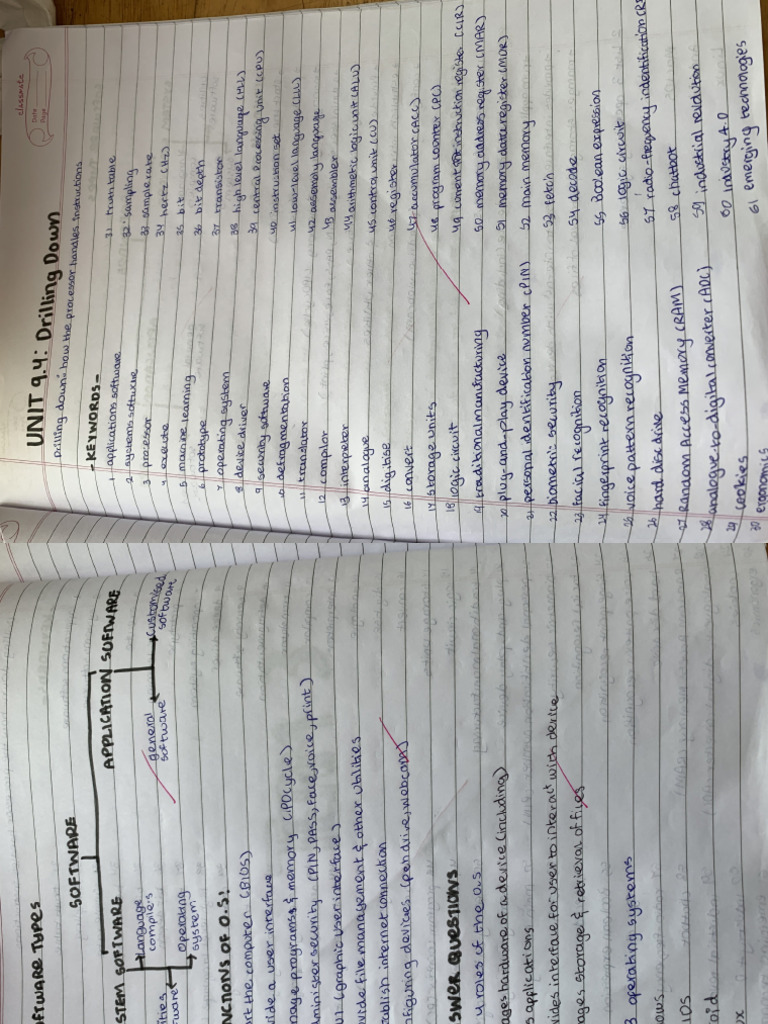 classmate
Date
Page
UNIT 9.4: Drilling Down
Drilling down: how the processor handles instructions
- KEYWORDS -
1 applications software
2 systems software
3 processor
4 execute
5 machine learning
6 prototype
7 operating system
8 device driver
9 security software
10 defragmentation
11 translator
12 compilor
13 interpreter
14 analogue
15 digitise
16 convert
17 storage units
18 logic circuit
19 traditional manufacturing
20 plug-and-play device
21 personal identification number (PIN)
22 biometric security
23 facial recognition
24 fingerprint recognition
25 voice pattern recognition
26 hard disc drive
27 Random Access Memory (RAM)
28 analogue-to-digital converter (ADC)
29 cookies
30 ergonomics
31 truth table
32 sampling
33 sample rate
34 hertz (Hz)
35 bit
36 bit depth
37 transistor
38 high level language (HLL)
39 central processing unit (CPU)
40 instruction set
41 low level language (LLL)
42 assembly language
43 assembler
44 arithmetic logic unit (ALU)
45 control unit (CU)
46 register
47 accumulator (ACC)
48 program counter (PC)
49 current instruction register (CIR)
50 memory address register (MAR)
51 memory data register (MDR)
52 main memory
53 fetch
54 decode
55 Boolean expression
56 logic circuit
57 radio-frequency indentification (R
58 chatbot
59 industrial revolution
60 Industry 4.0
61 emerging technologies
FTWARE TYPES
SOFTWARE
STEM SOFTWARE
APPLICATION SOFTWARE
Language compilers
general software
customised software
ities
tware
operating system
NCTIONS OF O.S:
rt the computer (BIOS)
vide a user interface
nage programs & memory (IPO cycle)
minister security (PIN, PASS, Face, voice, print)
UI (graphic user interface)
vide file management & other utilities
tablish internet connection
nfiguring devices (pendrive, webcam)
SWER QUESTIONS
4 roles of the o.s
ages hardware of a device (including)
s applications
vides interface for user to interact with device
ages storage & retrieval of files
3 operating systems
ows
iOS
oid
ux